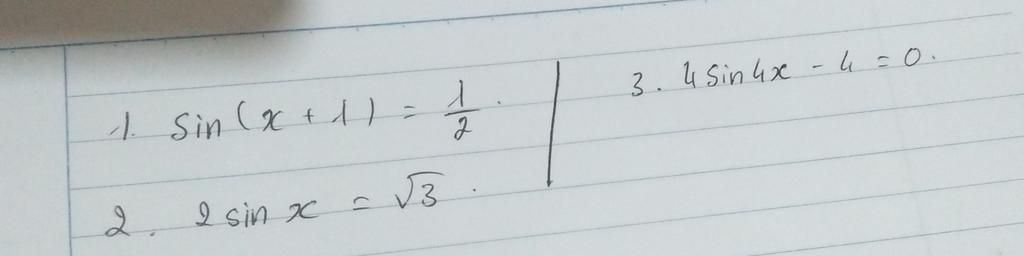 1. sin(x + 1) = 1/2.
2. 2 sin x = √3.
3. 4 sin 4x - 4 = 0.